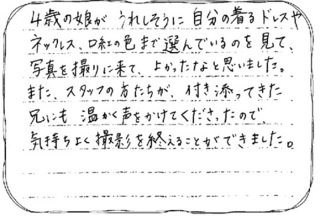 4歳の娘が うれしそうに 自分の着るドレスや
ネックレス、口紅の色まで選んでいるのを見て、
写真を撮りに来て、よかったなと思いました。
また、スタッフの方たちが、付き添ってきた
兄にも 温かく声をかけてくださったので、
気持ちよく撮影を終えることができました。